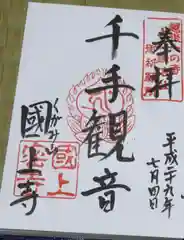 奉拝
平成二十九年
七月四日
千手観音
くがみ山
國上寺
國上